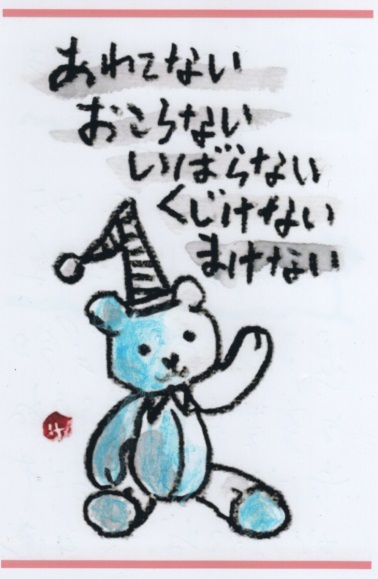 あわてない
おこらない
いばらない
くじけない
まけない